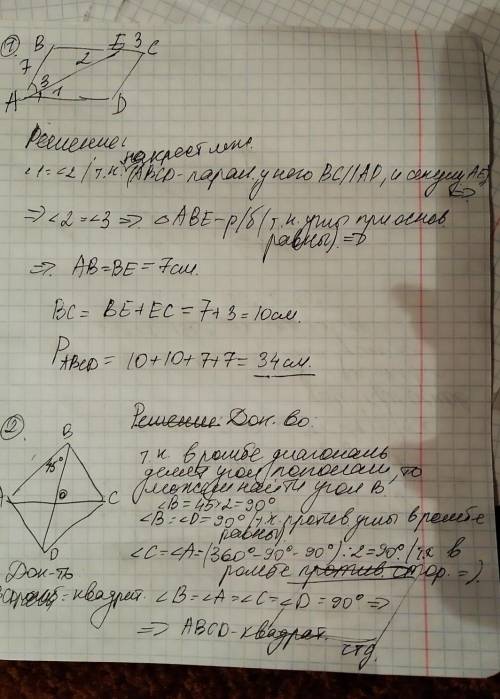 1 B E 3 C
7 2
3 1
A D
Решение:
накрест леж.
∠1=∠2 (т.к. (ABCD-парал, у него BC//AD, и секущ AE)
⇒ ∠2=∠3 ⇒ △ABE-р/б (т.к. углы при основ
равны). ⇒
⇒ AB=BE=7см.
BC= BE+EC=7+3=10см.
P ABCD = 10+10+7+7= 34см.
2 B
45°
A O C
D
Решение: Док-во:
т.к. в ромбе диагональ
делит угол пополам, то
можем найти угол B
∠B=45·2=90°
∠B=∠D=90° (т.к. против. углы в ромбе
равны)
∠C=∠A=(360°-90°-90°):2=90° (т.к в
ромбе против. ⇒).
Док-ть
квадрат. ∠B=∠A=∠C=∠D=90° ⇒
⇒ ABCD-квадрат.
чтд.